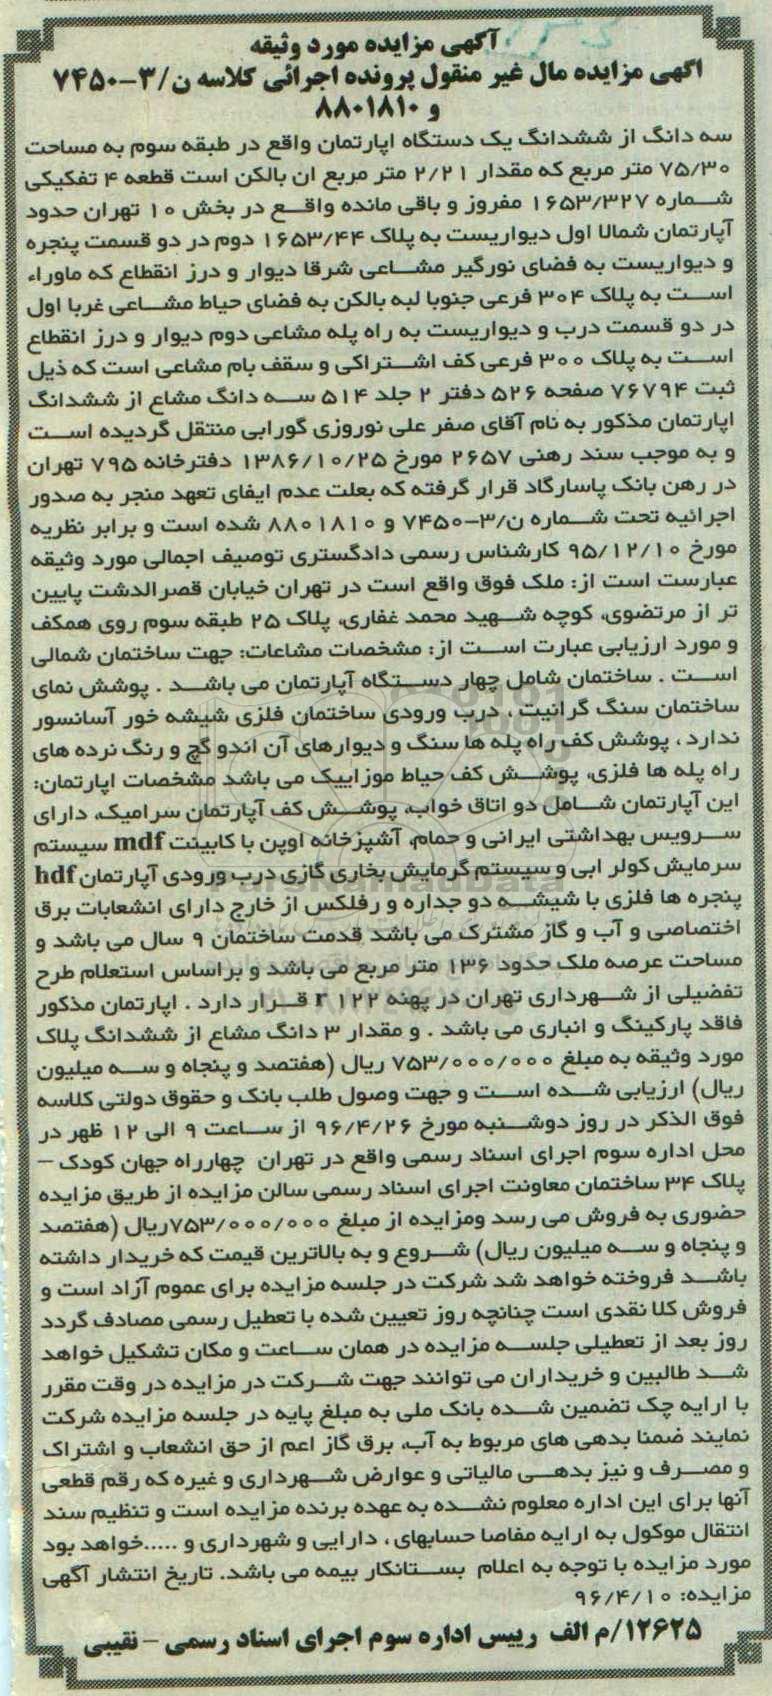 آگهی مزایده مورد وثیقه
اگهی مزایده مال غیر منقول پرونده اجرائی کلاسه ن/۳-۷۴۵۰
و ۸۸۰۱۸۱۰
سه دانگ از ششدانگ یک دستگاه اپارتمان واقع در طبقه سوم به مساحت
۷۵/۳۰ متر مربع که مقدار ۲/۲۱ متر مربع ان بالکن است قطعه ۴ تفکیکی
شماره ۱۶۵۳/۳۲۷ مفروز و باقی مانده واقع در بخش ۱۰ تهران حدود
آپارتمان شمالا اول دیواریست به پلاک ۱۶۵۳/۴۴ دوم در دو قسمت پنجره
و دیواریست به فضای نورگیر مشاعی شرقا دیوار و درز انقطاع که ماوراء
است به پلاک ۳۰۴ فرعی جنوبا لبه بالکن به فضای حیاط مشاعی غربا اول
در دو قسمت درب و دیواریست به راه پله مشاعی دوم دیوار و درز انقطاع
است به پلاک ۳۰۰ فرعی کف اشتراکی و سقف بام مشاعی است که ذیل
ثبت ۷۶۷۹۴ صفحه ۵۲۶ دفتر ۲ جلد ۵۱۴ سه دانگ مشاع از ششدانگ
اپارتمان مذکور به نام آقای صفر علی نوروزی گورابی منتقل گردیده است
و به موجب سند رهنی ۲۶۵۷ مورخ ۱۳۸۶/۱۰/۲۵ دفترخانه ۷۹۵ تهران
در رهن بانک پاسارگاد قرار گرفته که بعلت عدم ایفای تعهد منجر به صدور
اجرائیه تحت شماره ن/۳-۷۴۵۰ و ۸۸۰۱۸۱۰ شده است و برابر نظریه
مورخ ۹۵/۱۲/۱۰ کارشناس رسمی دادگستری توصیف اجمالی مورد وثیقه
عبارست است از: ملک فوق واقع است در تهران خیابان قصرالدشت پایین
تر از مرتضوی، کوچه شهید محمد غفاری، پلاک ۲۵ طبقه سوم روی همکف
و مورد ارزیابی عبارت است از: مشخصات مشاعات: جهت ساختمان شمالی
است . ساختمان شامل چهار دستگاه آپارتمان می باشد . پوشش نمای
ساختمان سنگ گرانیت ، درب ورودی ساختمان فلزی شیشه خور آسانسور
ندارد ، پوشش کف راه پله ها سنگ و دیوارهای آن اندو گچ و رنگ نرده های
راه پله ها فلزی، پوشش کف حیاط موزاییک می باشد مشخصات اپارتمان:
این آپارتمان شامل دو اتاق خواب، پوشش کف آپارتمان سرامیک، دارای
سرویس بهداشتی ایرانی و حمام، آشپزخانه اوپن با کابینت mdf سیستم
سرمایش کولر ابی و سیستم گرمایش بخاری گازی درب ورودی آپارتمان hdf
پنجره ها فلزی با شیشه دو جداره و رفلکس از خارج دارای انشعابات برق
اختصاصی و آب و گاز مشترک می باشد قدمت ساختمان ۹ سال می باشد و
مساحت عرصه ملک حدود ۱۳۶ متر مربع می باشد و براساس استعلام طرح
تفضیلی از شهرداری تهران در پهنه r ۱۲۲ قرار دارد . اپارتمان مذکور
فاقد پارکینگ و انباری می باشد . و مقدار ۳ دانگ مشاع از ششدانگ پلاک
مورد وثیقه به مبلغ ۷۵۳/۰۰۰/۰۰۰ ریال (هفتصد و پنجاه و سه میلیون
ریال) ارزیابی شده است و جهت وصول طلب بانک و حقوق دولتی کلاسه
فوق الذکر در روز دوشنبه مورخ ۹۶/۴/۲۶ از ساعت ۹ الی ۱۲ ظهر در
محل اداره سوم اجرای اسناد رسمی واقع در تهران چهارراه جهان کودک –
پلاک ۳۴ ساختمان معاونت اجرای اسناد رسمی سالن مزایده از طریق مزایده
حضوری به فروش می رسد ومزایده از مبلغ ۷۵۳/۰۰۰/۰۰۰ریال (هفتصد
و پنجاه و سه میلیون ریال) شروع و به بالاترین قیمت که خریدار داشته
باشد فروخته خواهد شد شرکت در جلسه مزایده برای عموم آزاد است و
فروش کلا نقدی است چنانچه روز تعیین شده با تعطیل رسمی مصادف گردد
روز بعد از تعطیلی جلسه مزایده در همان ساعت و مکان تشکیل خواهد
شد طالبین و خریداران می توانند جهت شرکت در مزایده در وقت مقرر
با ارایه چک تضمین شده بانک ملی به مبلغ پایه در جلسه مزایده شرکت
نمایند ضمنا بدهی های مربوط به آب، برق گاز اعم از حق انشعاب و اشتراک
و مصرف و نیز بدهی مالیاتی و عوارض شهرداری و غیره که رقم قطعی
آنها برای این اداره معلوم نشده به عهده برنده مزایده است و تنظیم سند
انتقال موکول به ارایه مفاصا حسابهای ، دارایی و شهرداری و .....خواهد بود
مورد مزایده با توجه به اعلام بستانکار بیمه می باشد. تاریخ انتشار آگهی
مزایده: ۹۶/۴/۱۰
۱۲۶۲۵/م الف رییس اداره سوم اجرای اسناد رسمی – نقیبی